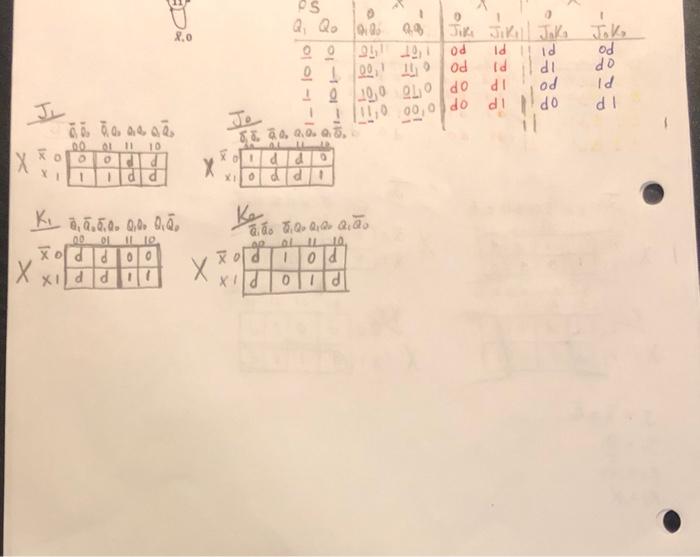 11
x.0
PS
Q₁ Q₀ 0 1 0 1 0 1
Q₁Q₀ Q₁Q₀ J₁K₁ J₁K₁ J₀K₀ J₀K₀
0 0 01,1 10,1 0d 1d 1d 0d
0 1 00,1 11,0 0d 1d d1 d0
1 0 10,0 01,0 d0 d1 0d 1d
1 1 11,0 00,0 d0 d1 d0 d1
J₁
Q̄₁Q̄₀ Q̄₁Q₀ Q₁Q₀ Q₁Q̄₀
00 01 11 10
X X̄ 0 0 0 d d
X 1 1 1 d d
J₀
Q̄₁Q̄₀ Q̄₁Q₀ Q₁Q₀ Q₁Q̄₀
00 01 11 10
X X̄ 0 1 d d 0
X 1 0 d d 1
K₁
Q̄₁Q̄₀ Q̄₁Q₀ Q₁Q₀ Q₁Q̄₀
00 01 11 10
X X̄ 0 d d 0 0
X 1 d d 1 1
K₀
Q̄₁Q̄₀ Q̄₁Q₀ Q₁Q₀ Q₁Q̄₀
00 01 11 10
X X̄ 0 d 1 0 d
X 1 d 0 1 d